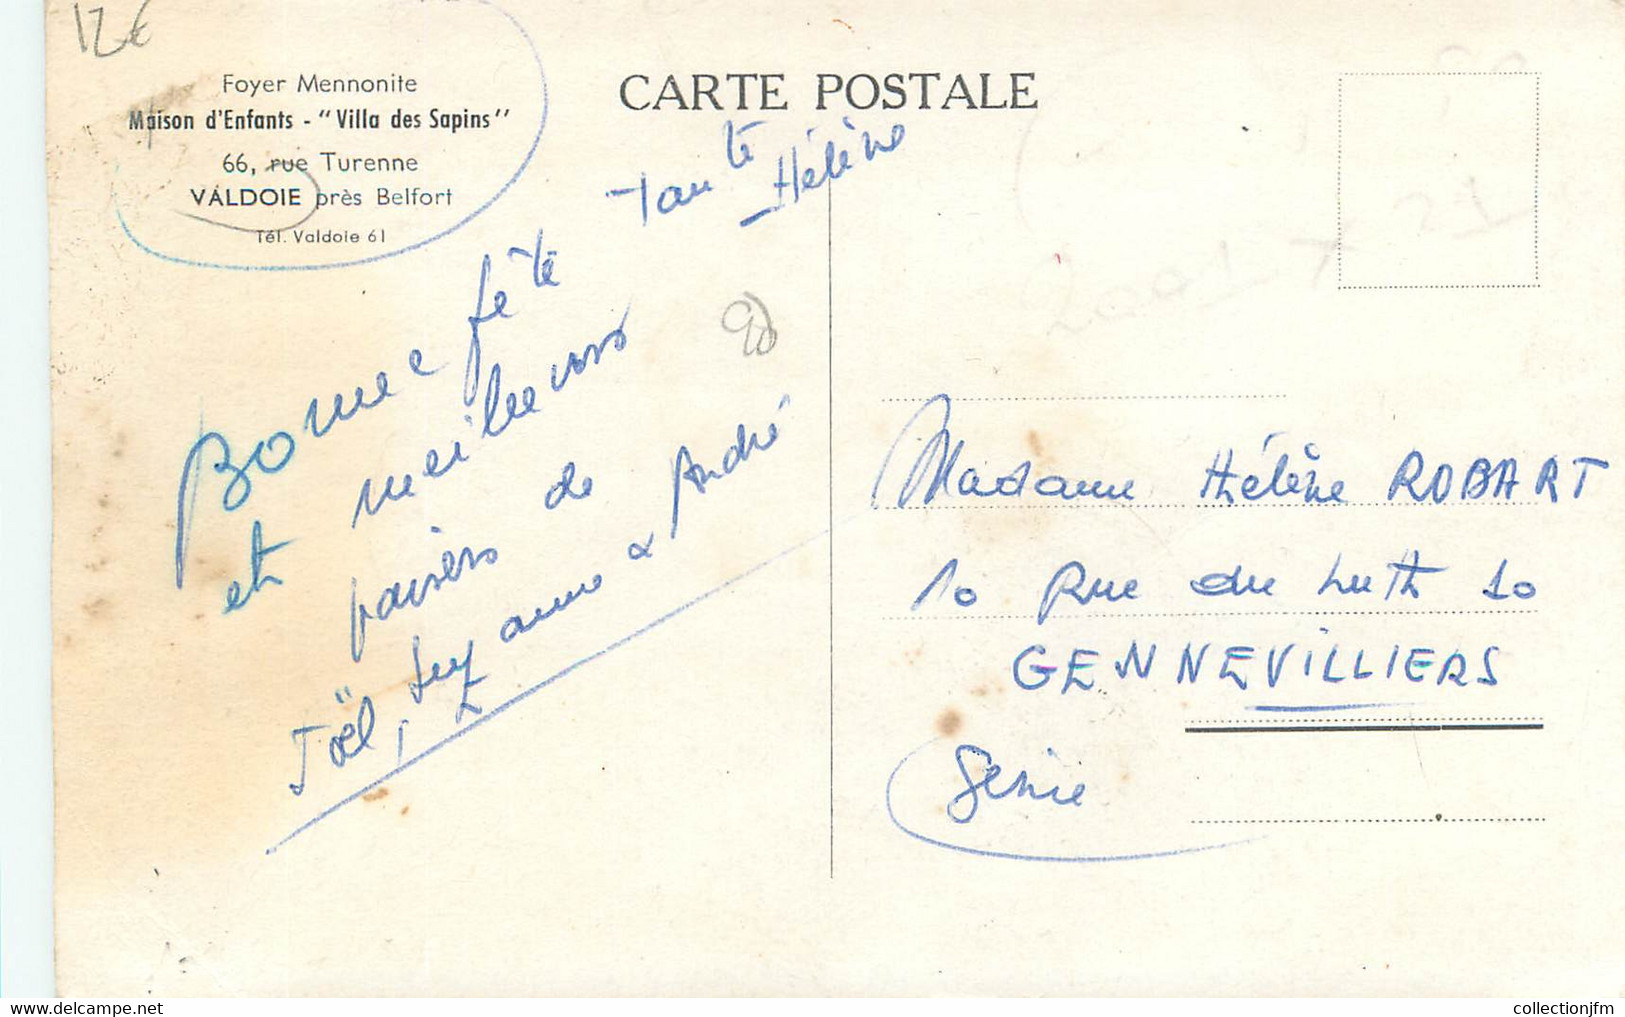 12€
Foyer Mennonite
Maison d'Enfants - "Villa des Sapins"
66, rue Turenne
VALDOIE près Belfort
Tél. Valdoie 61
CARTE POSTALE
Bonne fête Tante Hélène
et meilleurs
baisers de
Joël, Suzanne & André
90
Madame Hélène ROBART
10 Rue du Luth 10
GENNEVILLIERS
Seine
collectionjfm